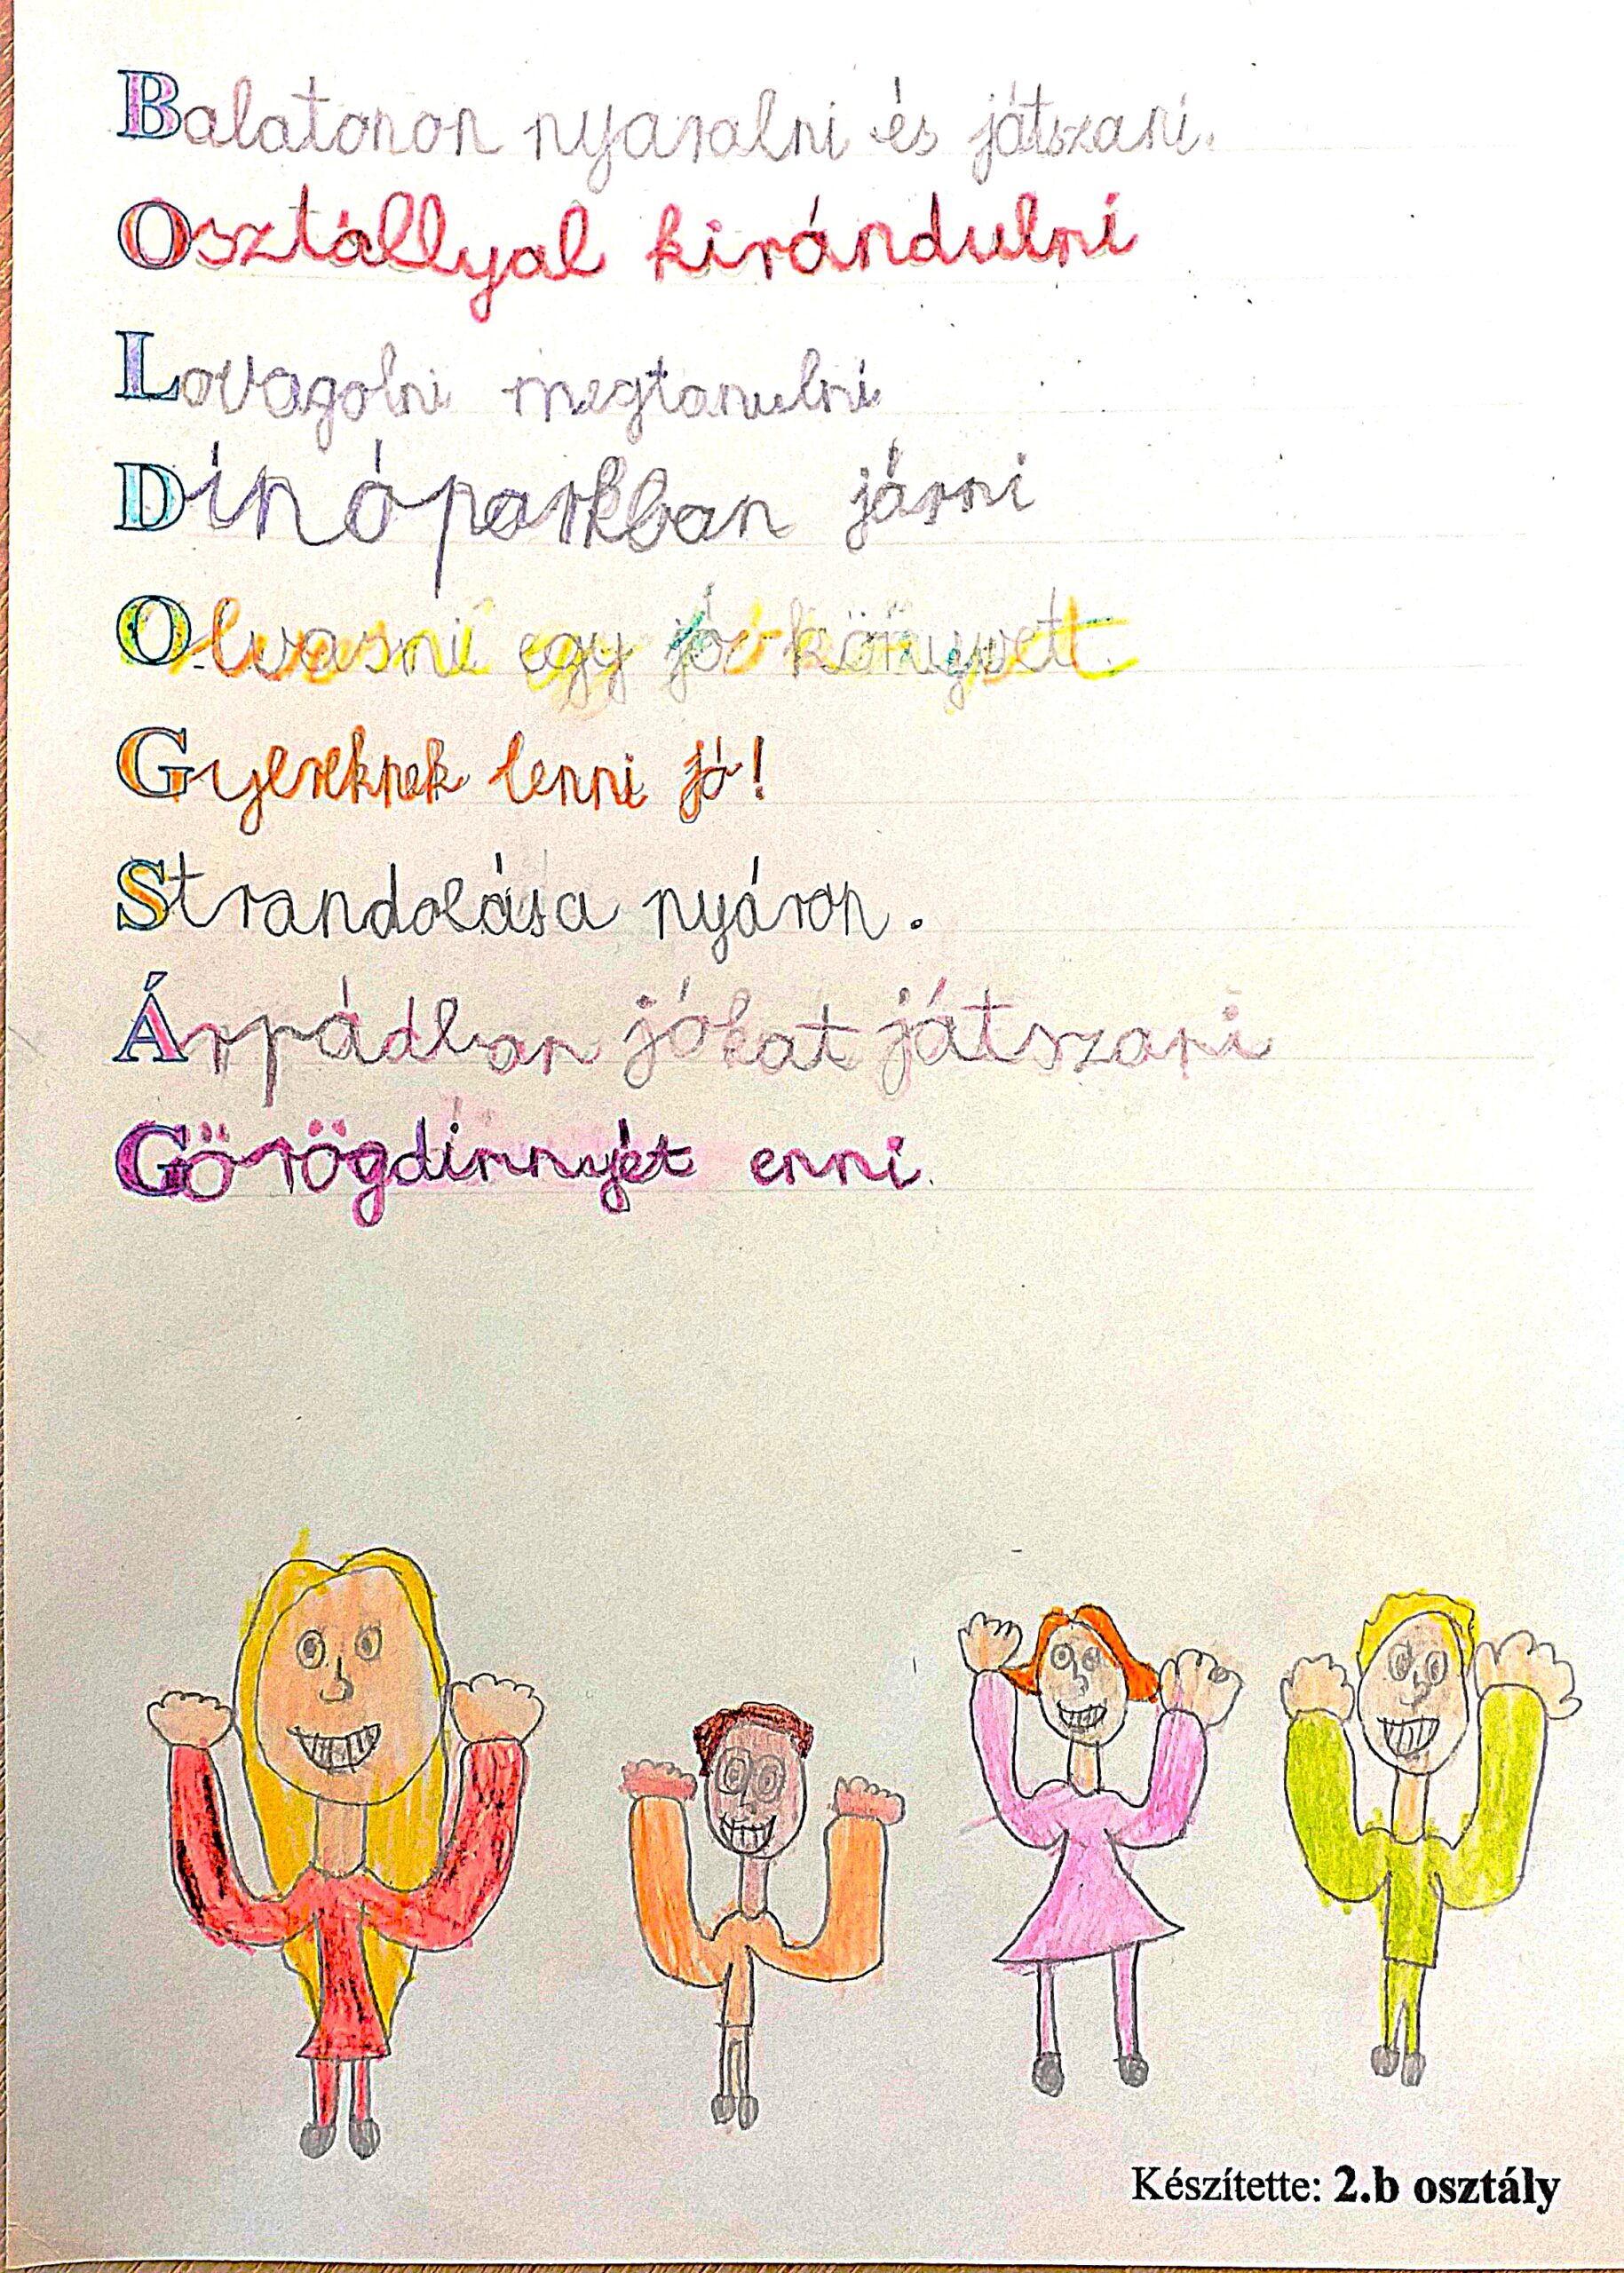 Balatonon nyaralni és játszani.
Osztállyal kirándulni
Lovagolni megtanulni
Dínóparkban járni
Olvasni egy jó könyvet.
Gyereknek lenni jó!
Strandolása nyáron.
Árpádban jókat játszani
Görögdinnyét enni.
Készítette: 2.b osztály